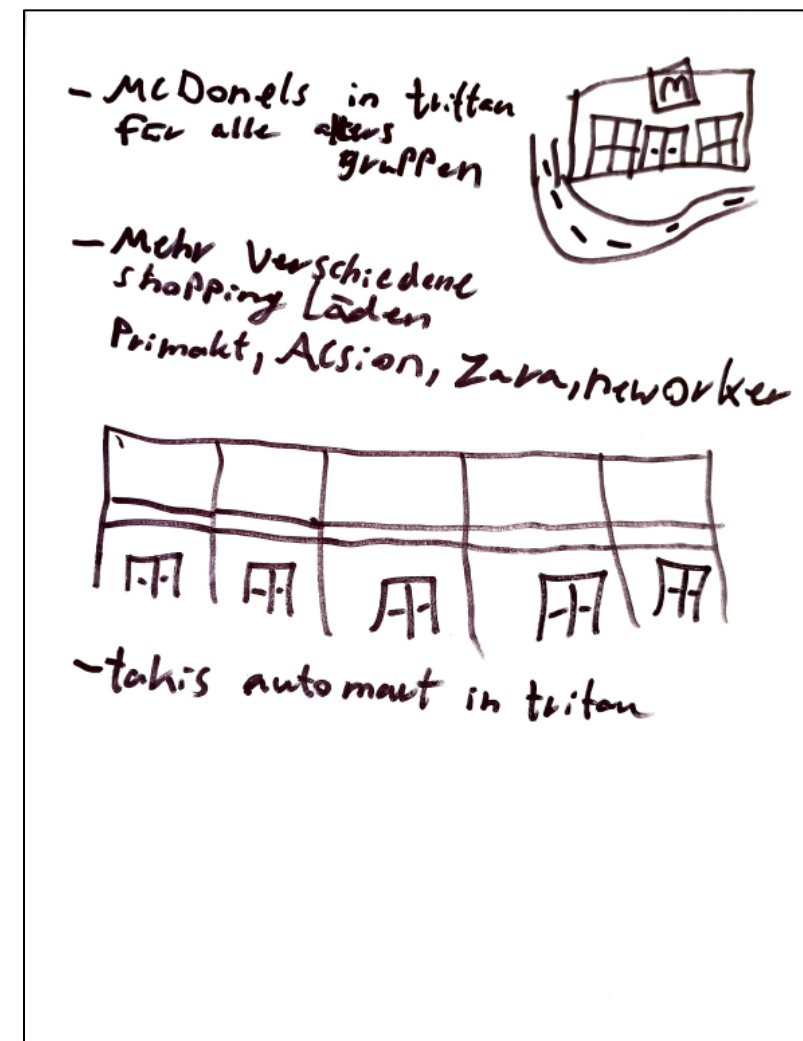 - McDonels in triftan
für alle alters
gruppen
M
- Mehr verschiedene
shopping Läden
Primakt, Acsion, Zara, neworker
- takis automaut in tritan